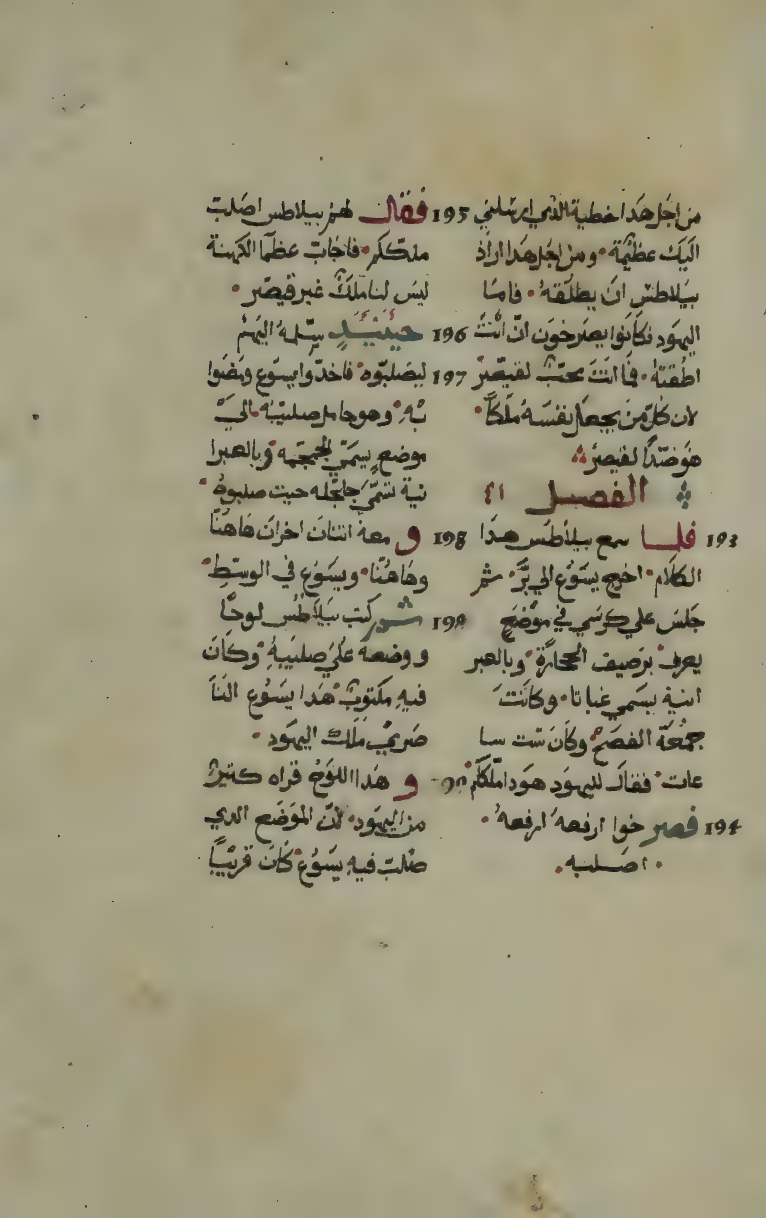 من اجل هدا خطية الذي اسلمني
اليك عظيمة ومن اجل هدا اراد
بيلاطس ان يطلقه فاما
اليهود فكانوا يصرخون ان انت
اطلقته فما انت محب لقيصر
لان كل من يجعل نفسه ملكا
هو ضدا لقيصر
الفصل ٤١
193 فلما سمع بيلاطس هدا
الكلام اخرج يسوع الي برّ ثم
جلس علي كرسي في موضع
يعرف برصيف الحجارة وبالعبر
انية يسمي غباتا وكانت
جمعة الفصح وكان ست سا
عات فقال لليهود هودا ملككم
194 فصرخوا ارفعه ارفعه
اصلبه
195 فقال لهم بيلاطس اصلب
ملككم فاجاب عظما الكهنة
ليس لنا ملك غير قيصر
196 حينيد سلمه اليهم
197 ليصلبوه فاخدوا يسوع ومضوا
به وهو حامل صليبه الي
موضع يسمي الجمجمه وبالعبرا
نية تسمي جاجله حيت صلبوه
198 و معه اتنان اخران هاهنا
وهاهنا ويسوع في الوسط
199 ثم كتب بيلاطس لوحا
ووضعه علي صليبه وكان
فيه مكتوب هدا يسوع النا
صري ملك اليهود
و هدا اللوح قراه كتير
من اليهود لان الموضع الدي
صلب فيه يسوع كان قريبا